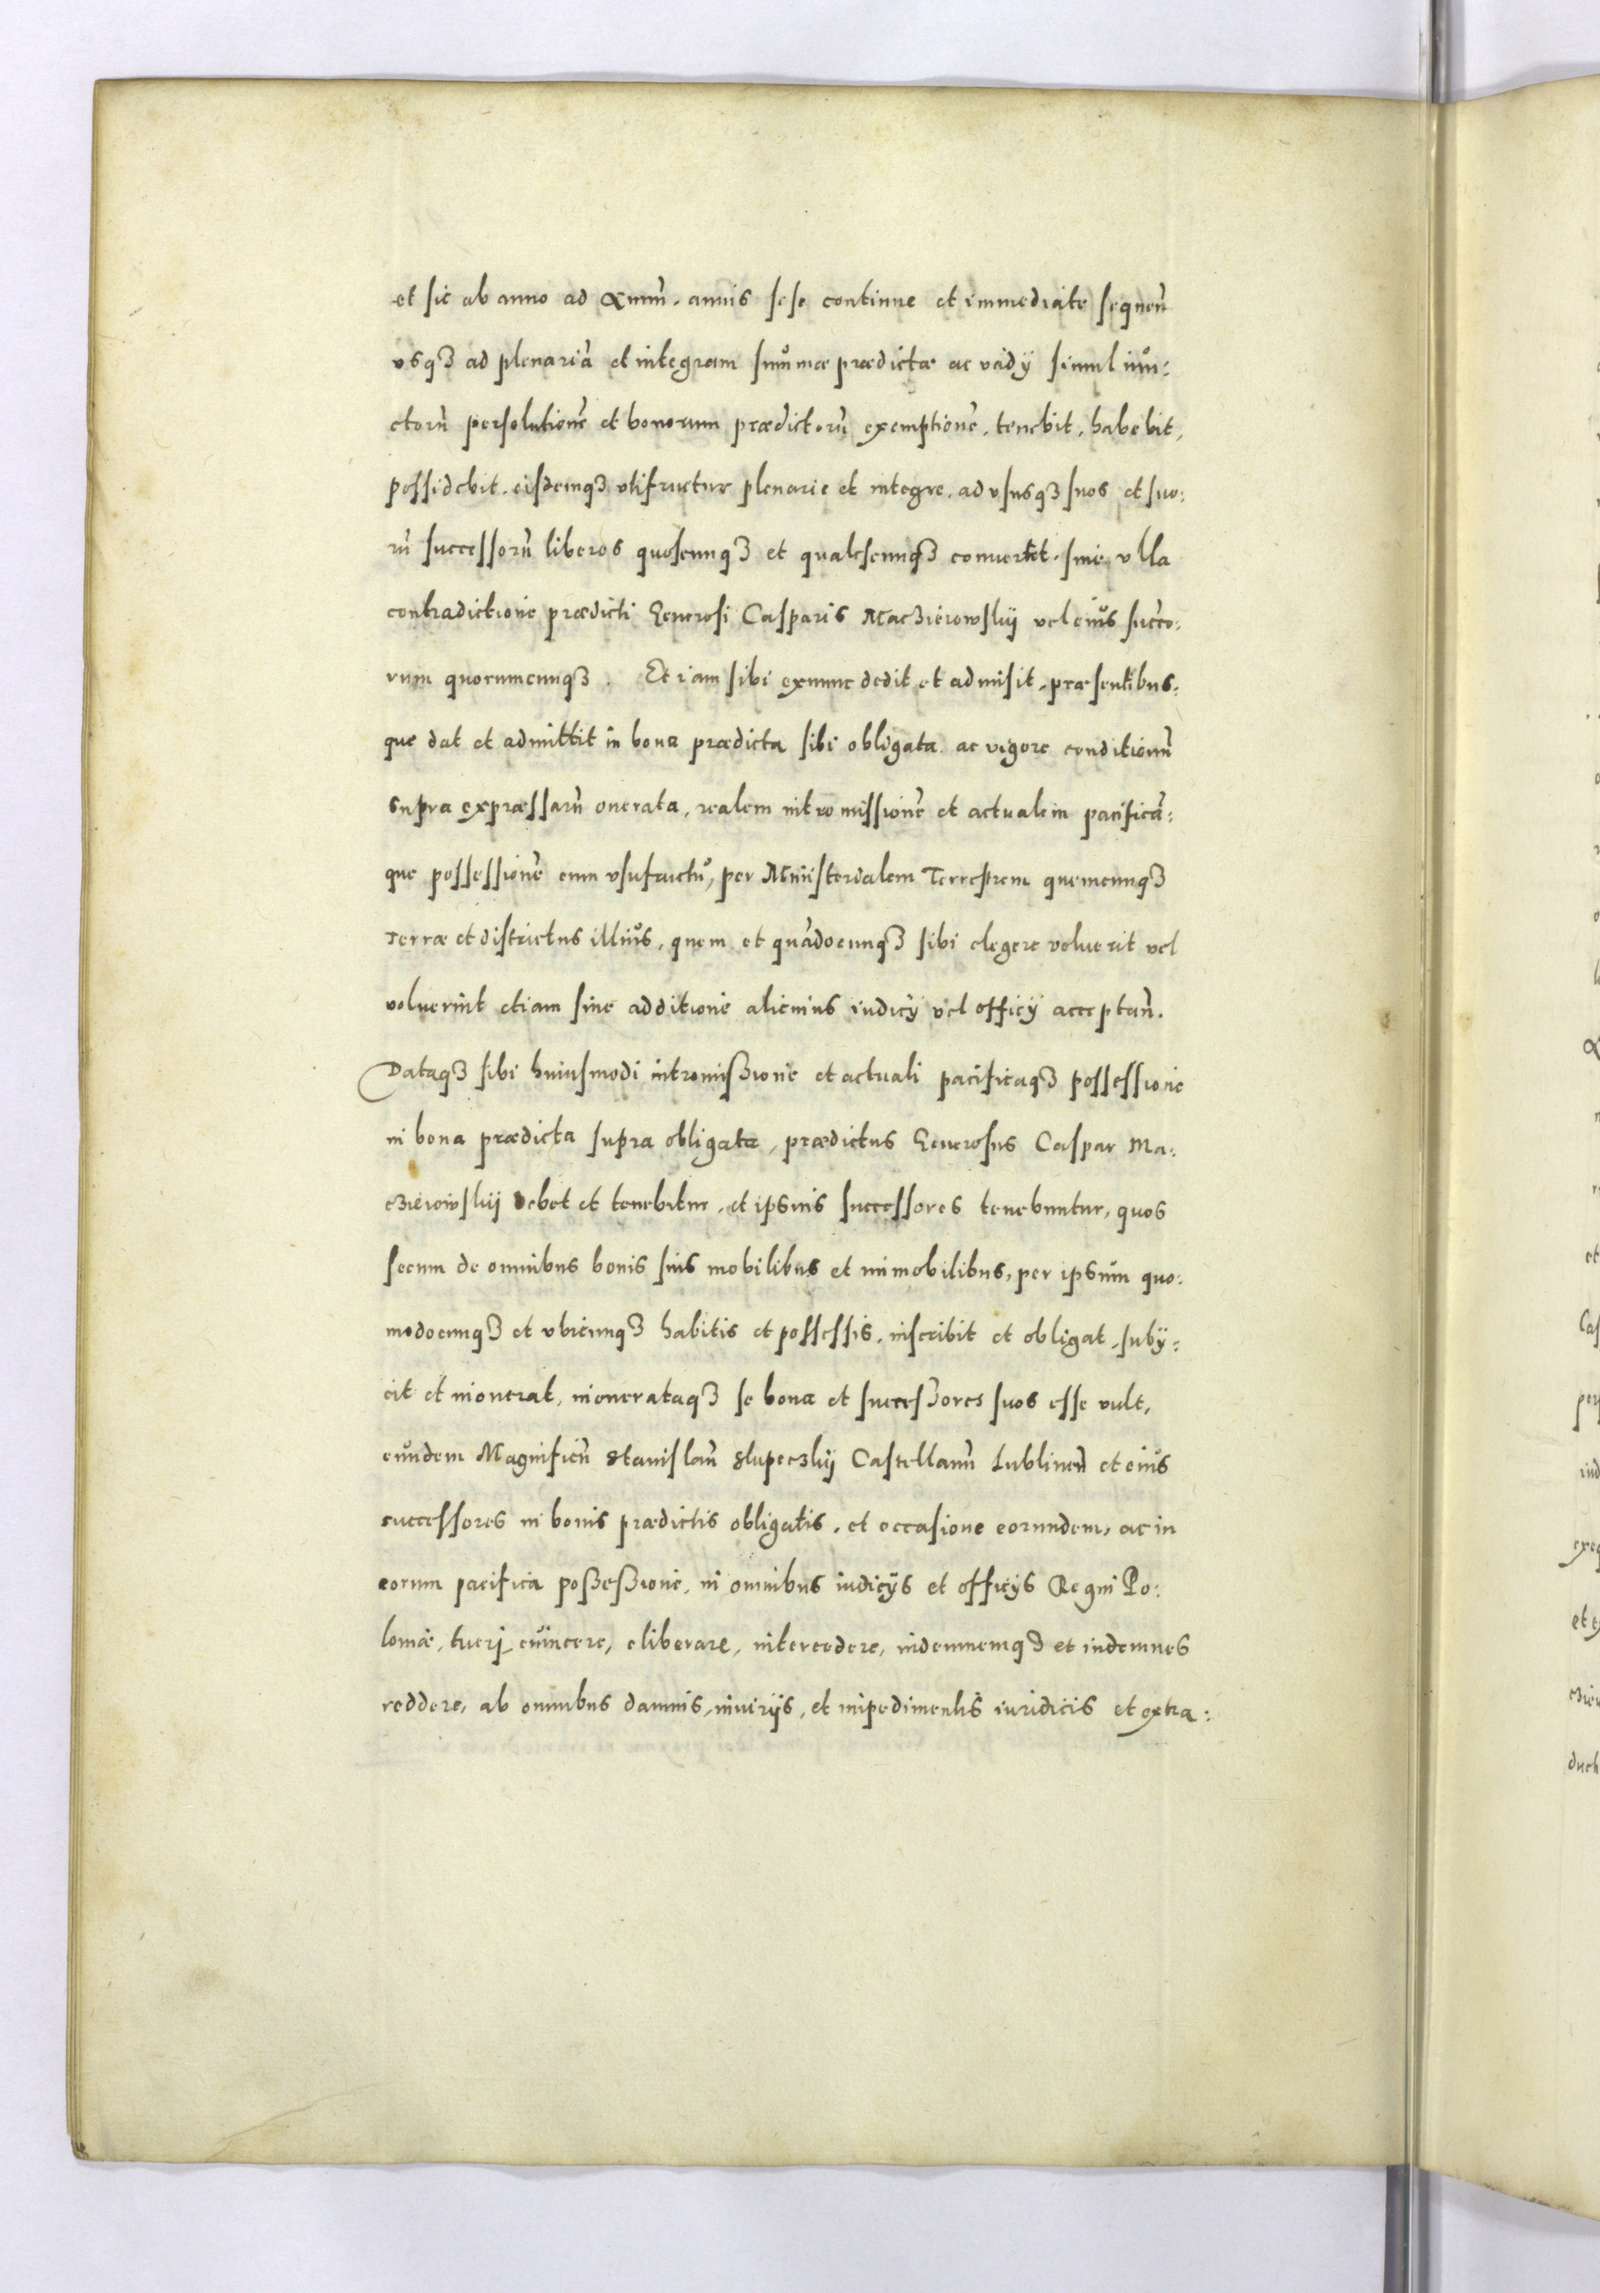 et sic ab anno ad annū. annis sese continue et immediate sequeñ
vsqꝫ ad plenariā et integram summæ prædictæ ac vadÿ simul iun:
ctorū persolutionē et bonorum prædictorū exemptionē, tenebit, habebit,
possidebit, eisdemqꝫ vtifruetur plenarie et integre, ad vsusqꝫ suos et suo:
rū successorū liberos quoscunqꝫ et qualescunqꝫ conuertet, sine vlla
contradictione prædicti Generosi Casparis Maczieiowskij vel eius succo:
rum quorumcunqꝫ. Et iam sibi exnunc dedit et admisit, præsentibus:
que dat et admittit in bona prædicta sibi obligata ac vigore conditionū
supra expræssarū onerata, realem intromissionē et actualem pacificā:
que possessionē cum vsufructu, per Ministerialem Terrestrem quemcunqꝫ
Terræ et districtus illius, quem et quādocunqꝫ sibi elegere voluerit vel
voluerint etiam sine additione alicuius iudicÿ vel officÿ acceptañ.
Dataqꝫ sibi huiusmodi intromißione et actuali pacificaqꝫ possessione
in bona prædicta supra obligata, prædictus Generosus Caspar Ma:
czieiowskij debet et tenebitur, et ipsius successores tenebuntur, quos
secum de omnibus bonis suis mobilibus et immobilibus, per ipsum quo:
modocunqꝫ et vbicunqꝫ habitis et possessis, inscribit et obligat, subÿ:
cit et inonerat, inonerataqꝫ se bona et succeßores suos esse vult,
eundem Magnificū Stanislaū Slupeczkij Castellanū Lublineñ et eius
successores in bonis prædictis obligatis, et occasione eorundem, ac in
eorum pacifica poßeßione, in omnibus iudicÿs et officÿs Regni Po:
loniæ, tueri, euincere, eliberare, intercedere, indemnemqꝫ et indemnes
reddere, ab omnibus damnis, iniurijs, et impedimentis iuridicis et extra: